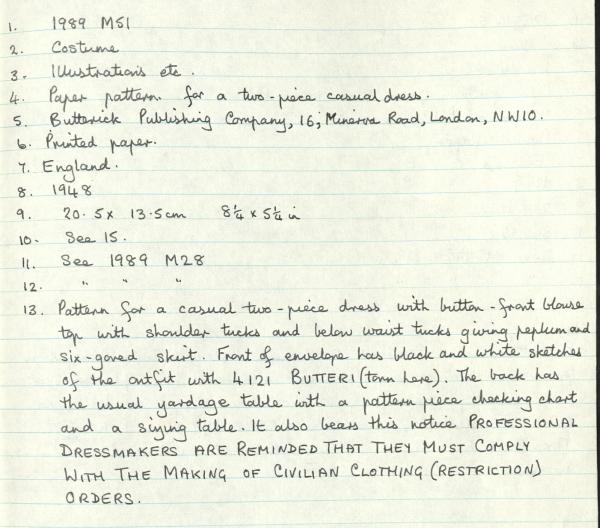 1. 1989 M51
2. Costume
3. Illustrations etc.
4. Paper pattern for a two-piece casual dress.
5. Butterick Publishing Company, 16, Minerva Road, London, NW10.
6. Printed paper.
7. England.
8. 1948
9. 20.5 x 13.5cm 8¼ x 5¼ in
10. See 15.
11. See 1989 M28
12. " " "
13. Pattern for a casual two-piece dress with button-front blouse
top with shoulder tucks and below waist tucks giving peplum and
six-gored skirt. Front of envelope has black and white sketches
of the outfit with 4121 BUTTERI (torn here). The back has
the usual yardage table with a pattern piece checking chart
and a sizing table. It also bears this notice PROFESSIONAL
DRESSMAKERS ARE REMINDED THAT THEY MUST COMPLY
WITH THE MAKING OF CIVILIAN CLOTHING (RESTRICTION)
ORDERS.